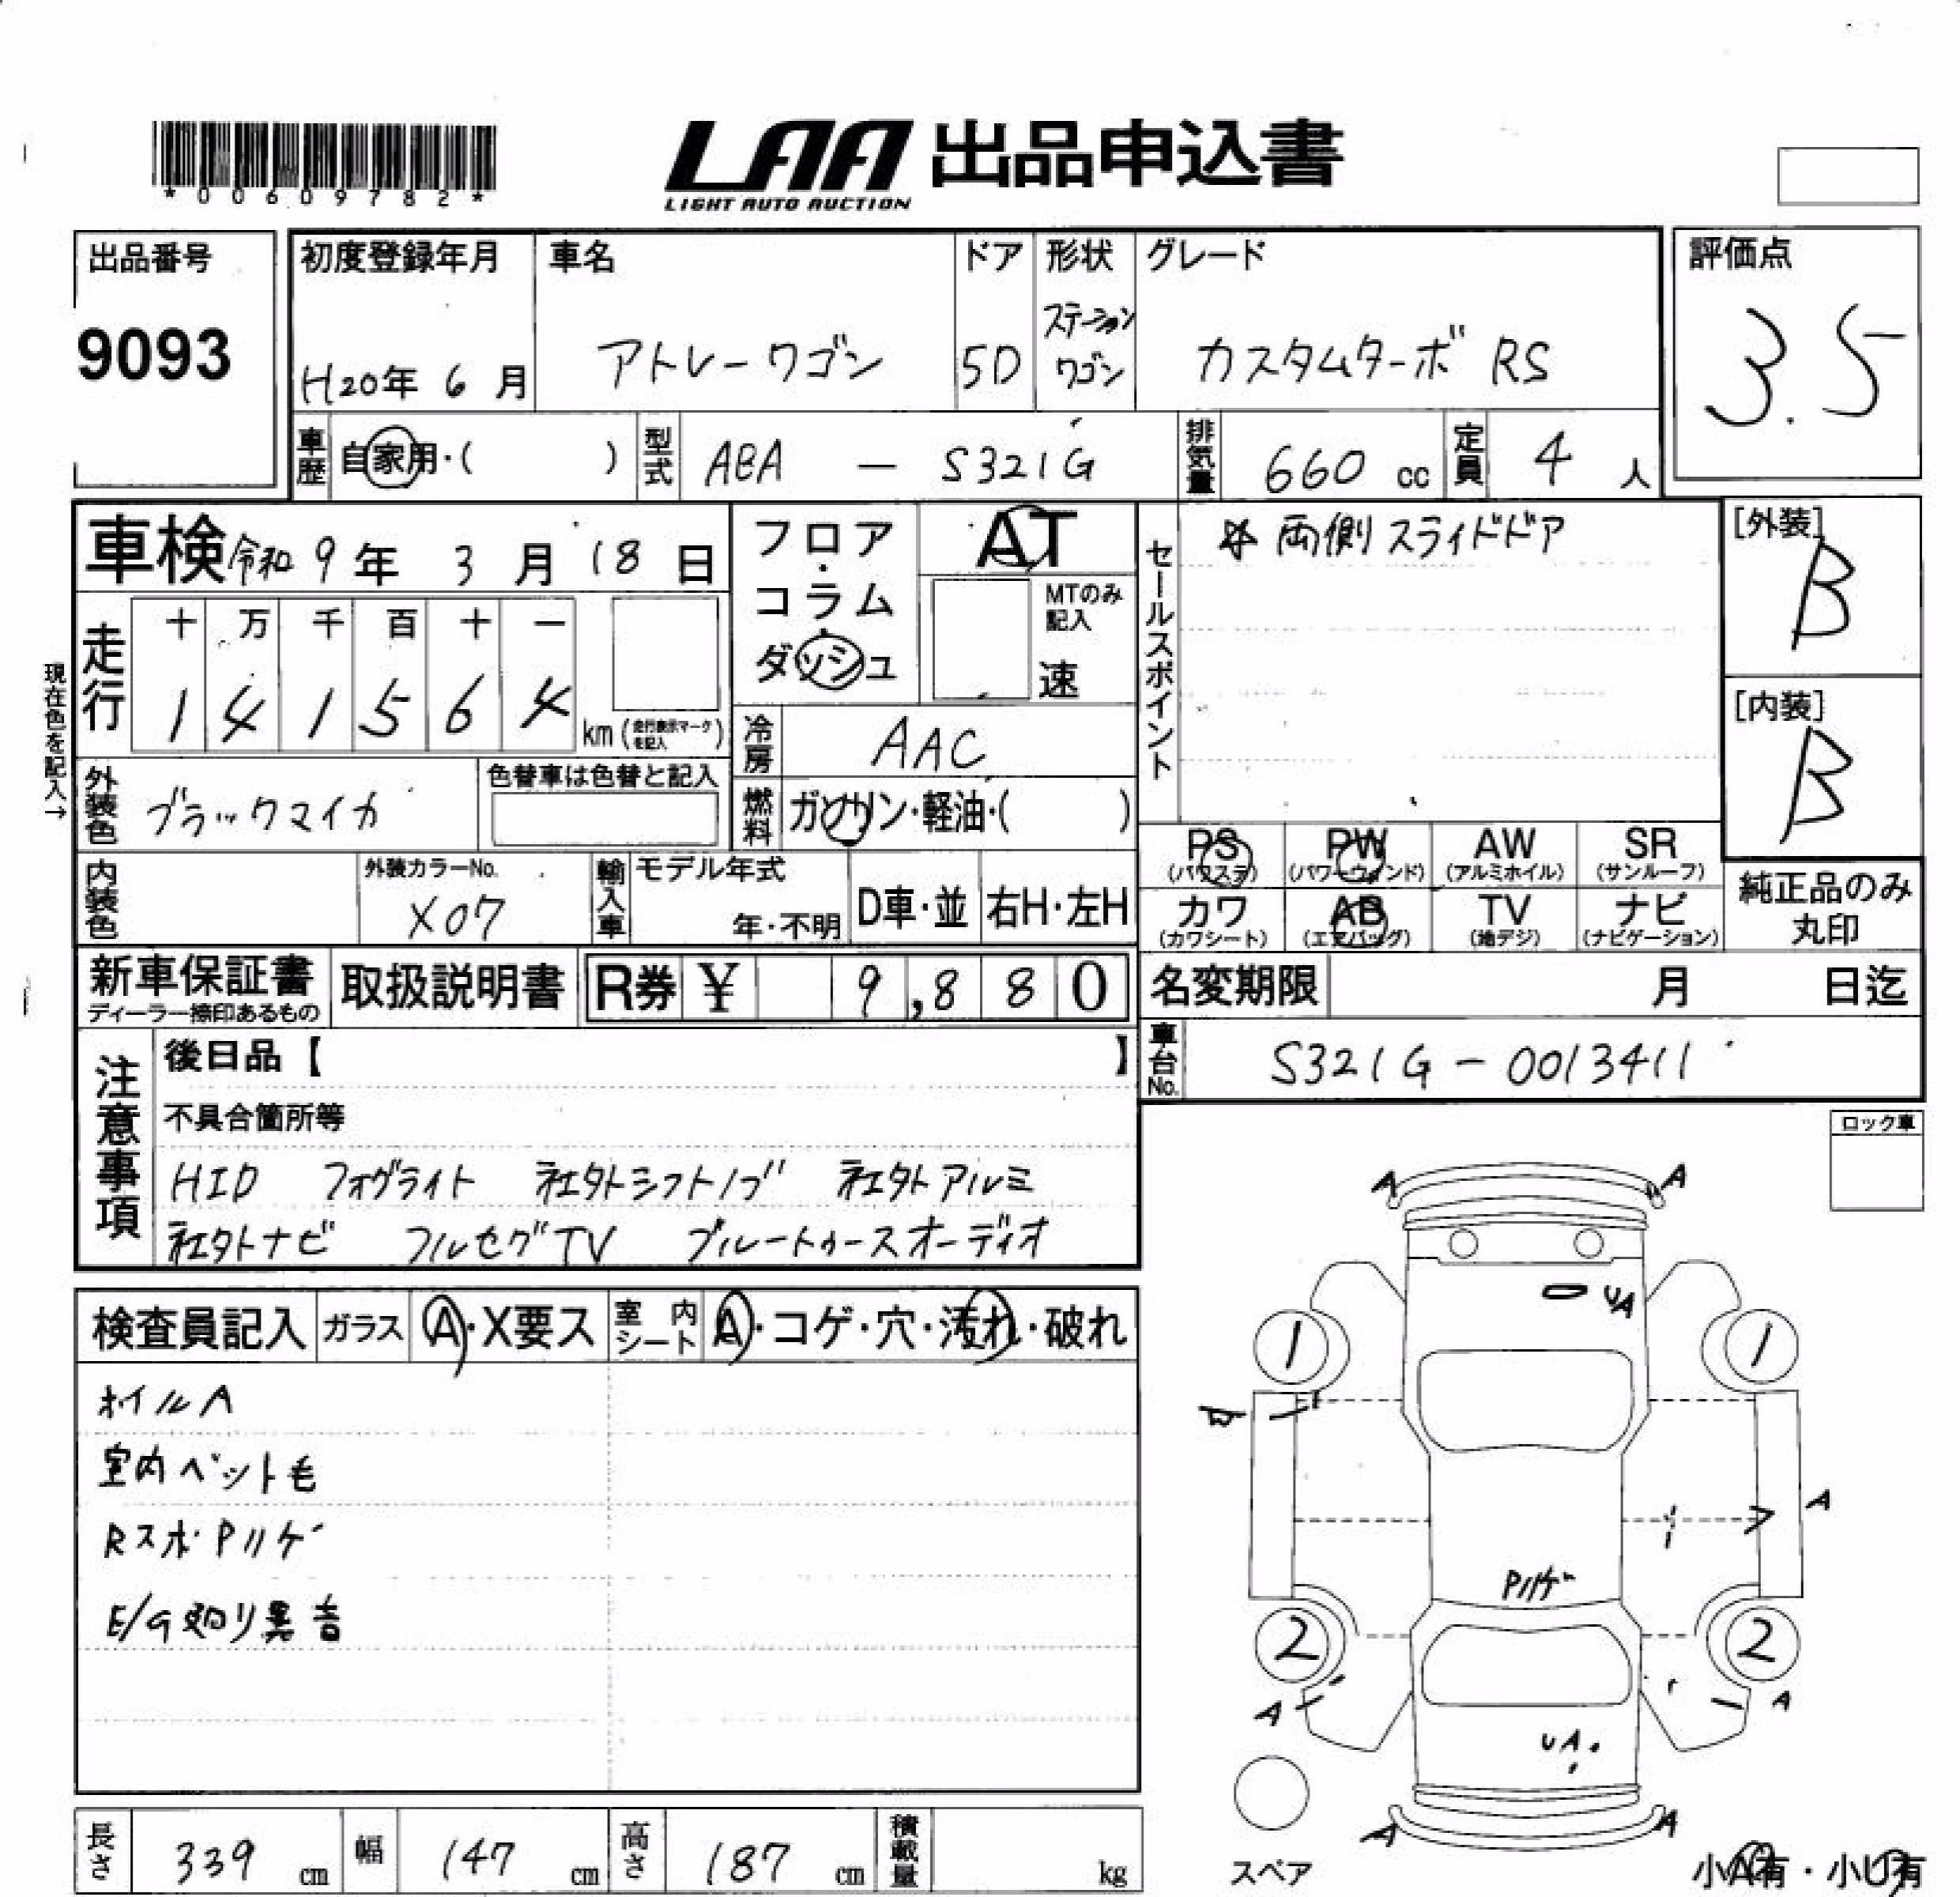 *00609782*
LAA 出品申込書
LIGHT AUTO AUCTION
出品番号
9093
初度登録年月
H20年 6 月
車名
アトレーワゴン
ドア
5D
形状
ステーションワゴン
グレード
カスタムターボ RS
評価点
3.5
車歴 自家用・( )
型式 ABA — S321G
排気量 660 cc
定員 4 人
車検 令和 9 年 3 月 18 日
フロア・コラム・ダッシュ
AT
MTのみ記入
速
セールスポイント
両側スライドドア
[外装]
B
[内装]
B
現在色を記入→
走行
十 万 千 百 十 一
1 4 1 5 6 4 km (走行表示マークを記入)
冷房 AAC
外装色 ブラックマイカ
色替車は色替と記入
燃料 ガソリン・軽油・( )
PS (パワステ)
PW (パワーウィンド)
AW (アルミホイル)
SR (サンルーフ)
カワ (カワシート)
AB (エアバッグ)
TV (地デジ)
ナビ (ナビゲーション)
純正品のみ丸印
内装色
外装カラーNo.
X07
輸入車
モデル年式
年・不明
D車・並
右H・左H
新車保証書
ディーラー捺印あるもの
取扱説明書
R券 ¥ 9,880
名変期限 月 日迄
車台No. S321G-0013411
注意事項
後日品【 】
不具合箇所等
HID フォグライト 社外シフトノブ 社外アルミ
社外ナビ フルセグTV ブルートゥースオーディオ
ロック車
検査員記入
ガラス A・X要ス
室内シート A・コゲ・穴・汚れ・破れ
ホイルA
室内ペット毛
RスポPハゲ
E/G廻り異音
A
A
UA
1
1
A
Pハゲ
2
2
A
A
UA
A
A
スペア
小A有・小U有
長さ 339 cm
幅 147 cm
高さ 187 cm
積載量 kg